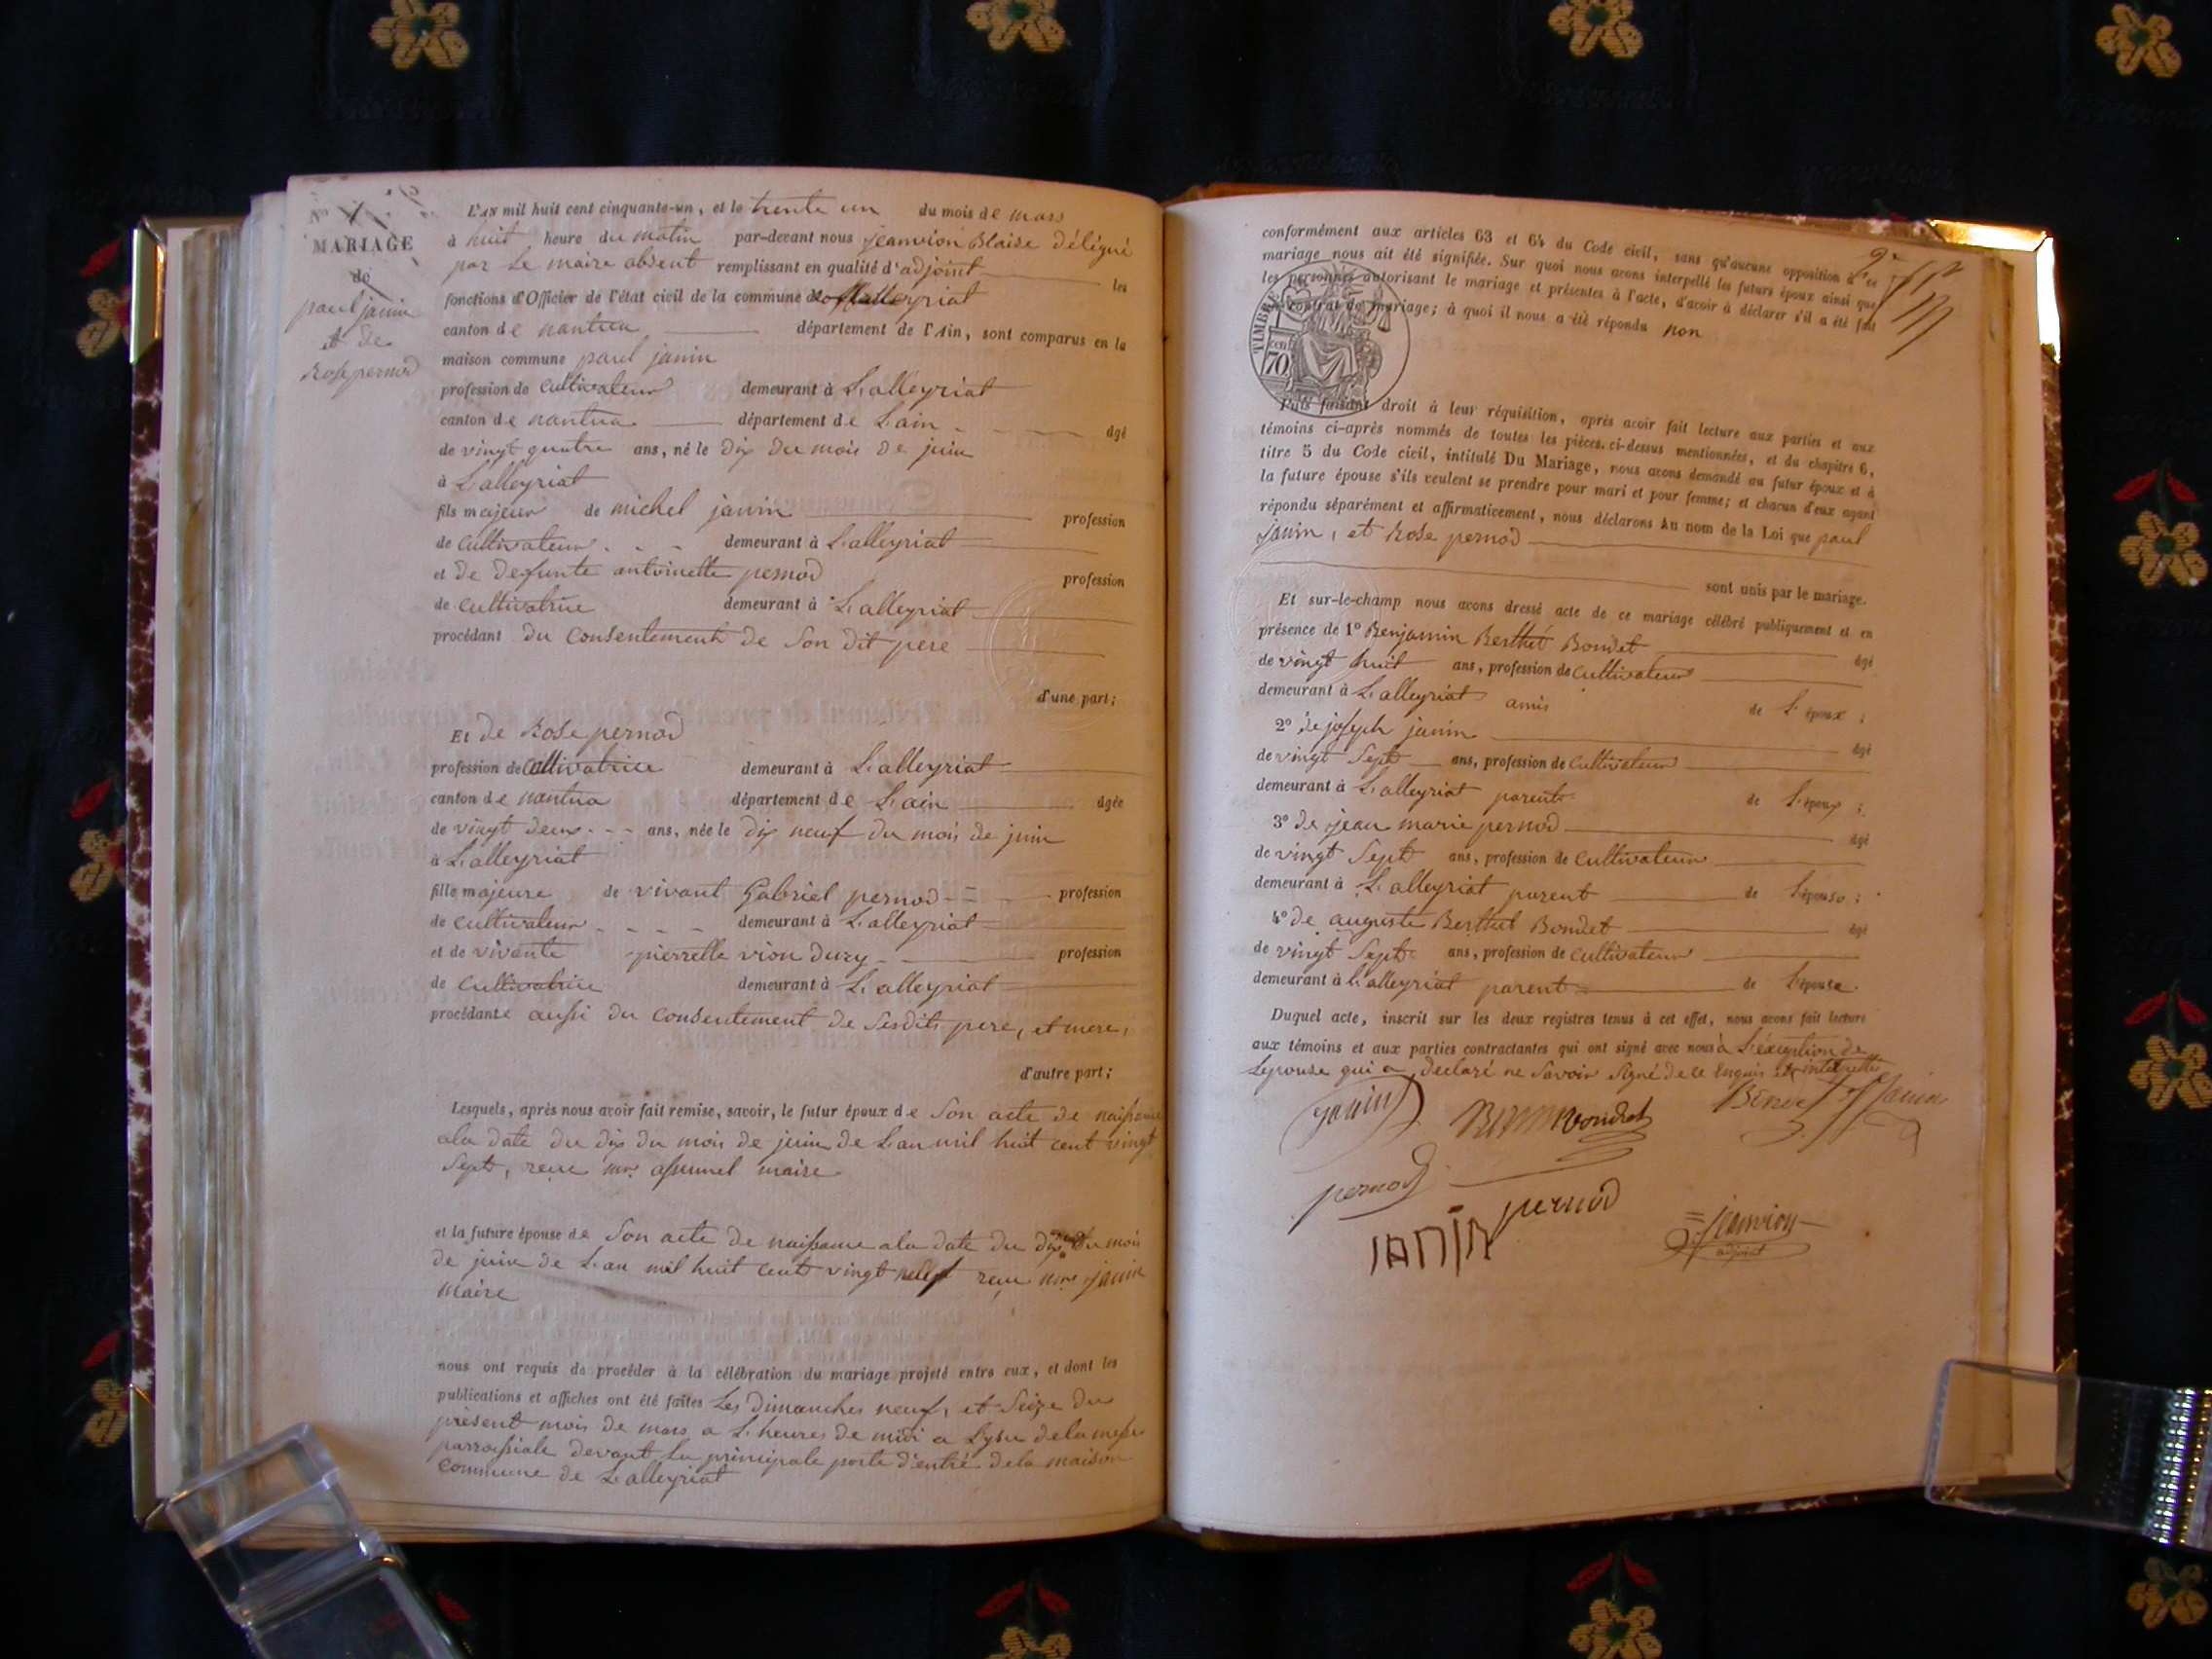 No 1
MARIAGE
de
paul janin
et de
Rose pernod
L'AN mil huit cent cinquante-un, et le trente un du mois de mars
à huit heure du matin par-devant nous jeanvion Blaise délégué
par le maire absent remplissant en qualité d'adjoint les
fonctions d'Officier de l'état civil de la commune de Lalleyriat
canton de nantua département de l'Ain, sont comparus en la
maison commune paul janin
profession de cultivateur demeurant à Lalleyriat
canton de nantua département de L'ain âgé
de vingt quatre ans, né le dix du mois de juin
à Lalleyriat
fils majeur de michel janin profession
de cultivateur demeurant à Lalleyriat
et de defunte antoinette pernod profession
de cultivatrice demeurant à Lalleyriat
procédant du consentement de son dit pere
d'une part;
Et de Rose pernod
profession de cultivatrice demeurant à Lalleyriat
canton de nantua département de L'ain âgée
de vingt deux ans, née le dix neuf du mois de juin
à Lalleyriat
fille majeure de vivant Gabriel pernod profession
de cultivateur demeurant à Lalleyriat
et de vivante pierrette vion dury profession
de cultivatrice demeurant à Lalleyriat
procédante aussi du consentement de sesdits pere, et mere,
d'autre part;
Lesquels, après nous avoir fait remise, savoir, le futur époux de son acte de naissance
ala date du dix du mois de juin de L'an mil huit cent vingt
sept, reçu mr. assumel maire
et la future épouse de son acte de naissance ala date du dix neuf du mois
de juin de L'an mil huit cent vingt neuf reçu mr. janin
maire
nous ont requis de procéder à la célébration du mariage projeté entre eux, et dont les
publications et affiches ont été faites Les dimanches neuf, et seize du
présent mois de mars a L'heures de midi a Lysu dela messe
parroissiale devant La principale porte d'entré dela maison
commune de Lalleyriat
conformément aux articles 63 et 64 du Code civil, sans qu'aucune opposition à ce
mariage nous ait été signifiée. Sur quoi nous avons interpellé les futurs époux ainsi que
les personnes autorisant le mariage et présentes à l'acte, d'avoir à déclarer s'il a été fait
contrat de mariage; à quoi il nous a été répondu non
TIMBRE
70
Puis faisant droit à leur réquisition, après avoir fait lecture aux parties et aux
témoins ci-après nommés de toutes les pièces ci-dessus mentionnées, et du chapitre 6,
titre 5 du Code civil, intitulé Du Mariage, nous avons demandé au futur époux et à
la future épouse s'ils veulent se prendre pour mari et pour femme; et chacun d'eux ayant
répondu séparément et affirmativement, nous déclarons au nom de la Loi que paul
janin, et Rose pernod
sont unis par le mariage.
Et sur-le-champ nous avons dressé acte de ce mariage célébré publiquement et en
présence de 1º Benjamin Berthet Bondet âgé
de vingt huit ans, profession de cultivateur
demeurant à Lalleyriat amis de L'époux;
2º de joseph janin âgé
de vingt sept ans, profession de cultivateur
demeurant à Lalleyriat parent de L'époux;
3º de jean marie pernod âgé
de vingt sept ans, profession de cultivateur
demeurant à Lalleyriat parent de L'épouse;
4º de auguste Berthet Bondet âgé
de vingt sept ans, profession de cultivateur
demeurant à Lalleyriat parent de L'épouse.
Duquel acte, inscrit sur les deux registres tenus à cet effet, nous avons fait lecture
aux témoins et aux parties contractantes qui ont signé avec nous à L'exception de
Lepouse qui a declaré ne savoir signé de ce enquis et interpellée
janin Bondet janin
pernod
pernod
IANIN jeanvion
adjoint